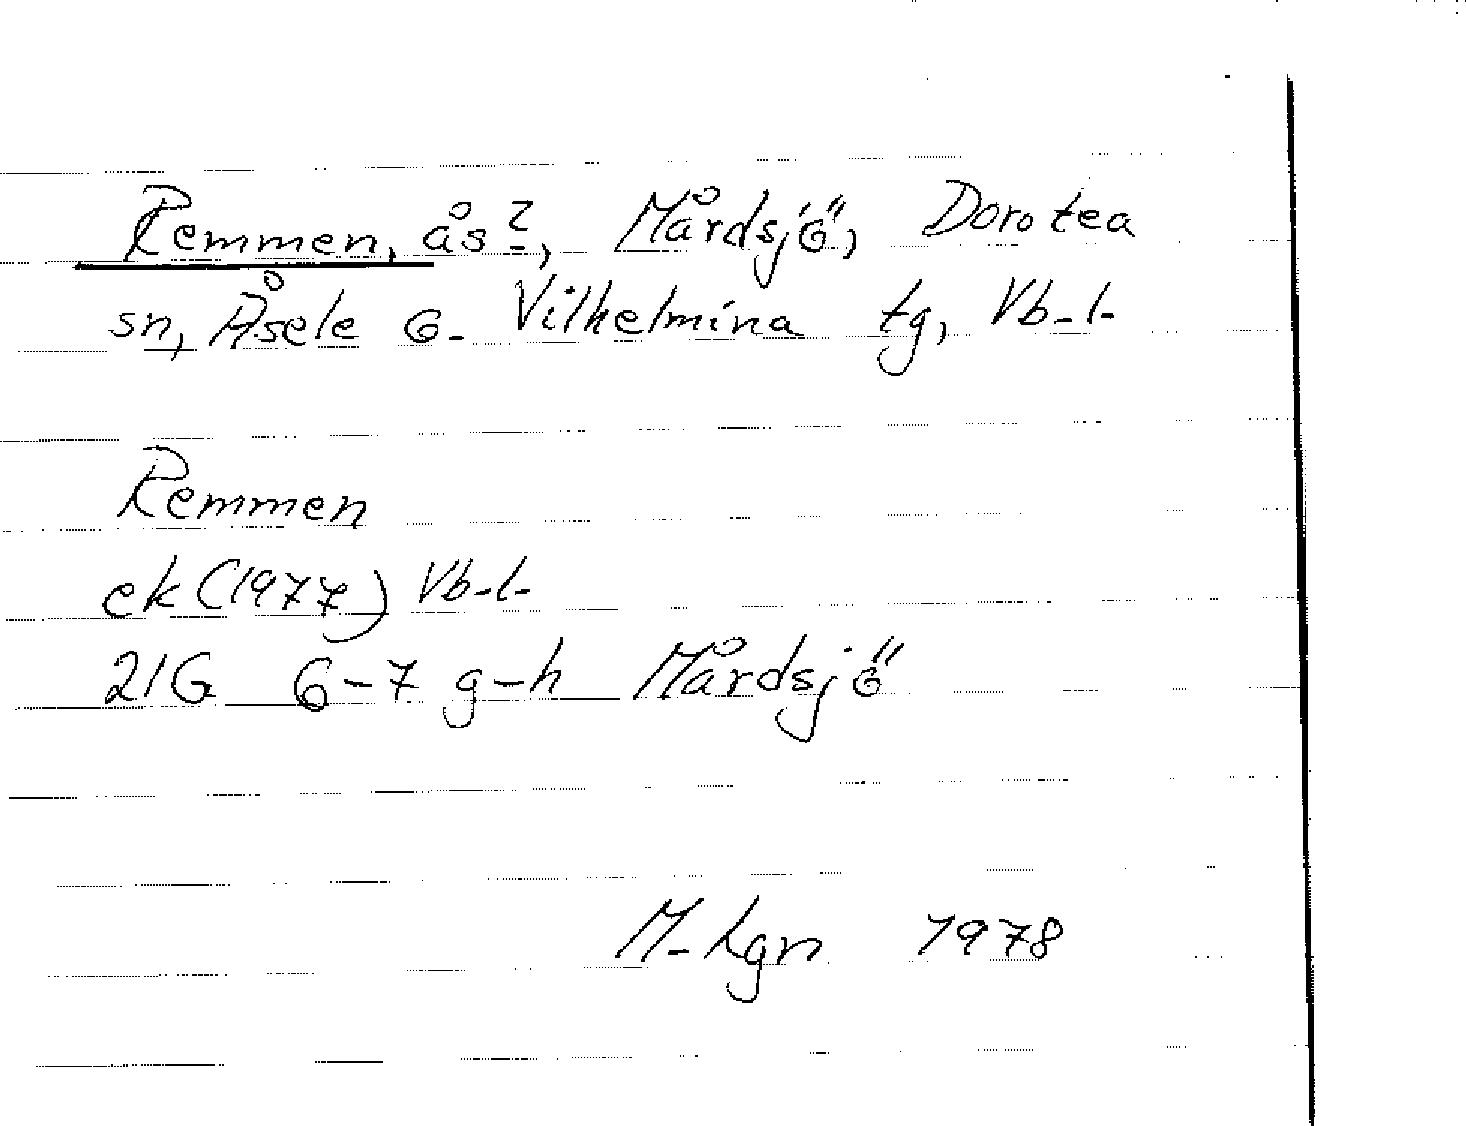 Remmen, ås?, Mårdsjö, Dorotea
sn, Åsele o. Vilhelmina tg, Vb-l.
Remmen
ek (1977) Vb-l.
21G 6-7 g-h Mårdsjö
M-Lgn 1978